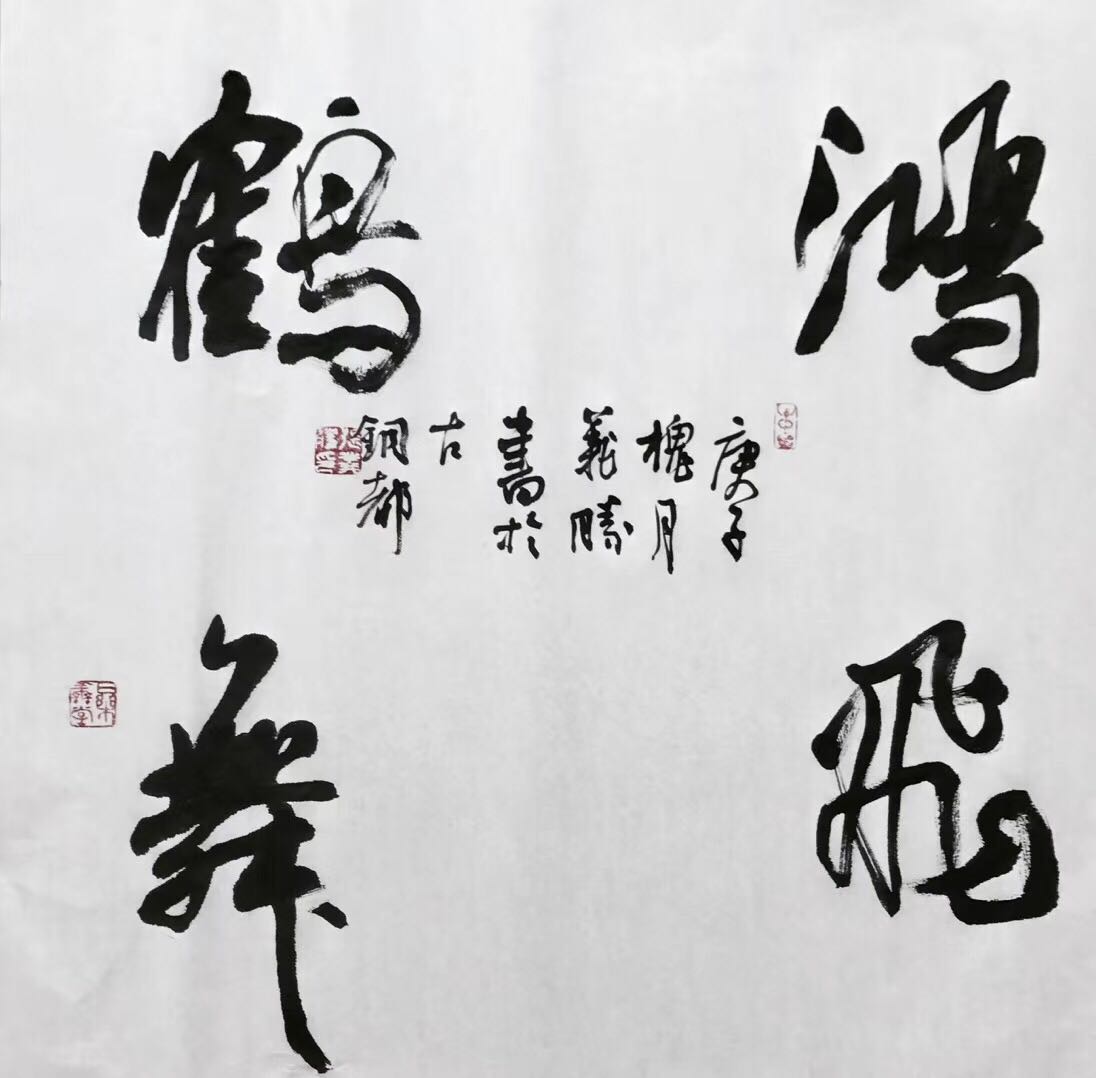 鴻飛
鶴舞
庚子
槐月
義勝
書於
古
銅都